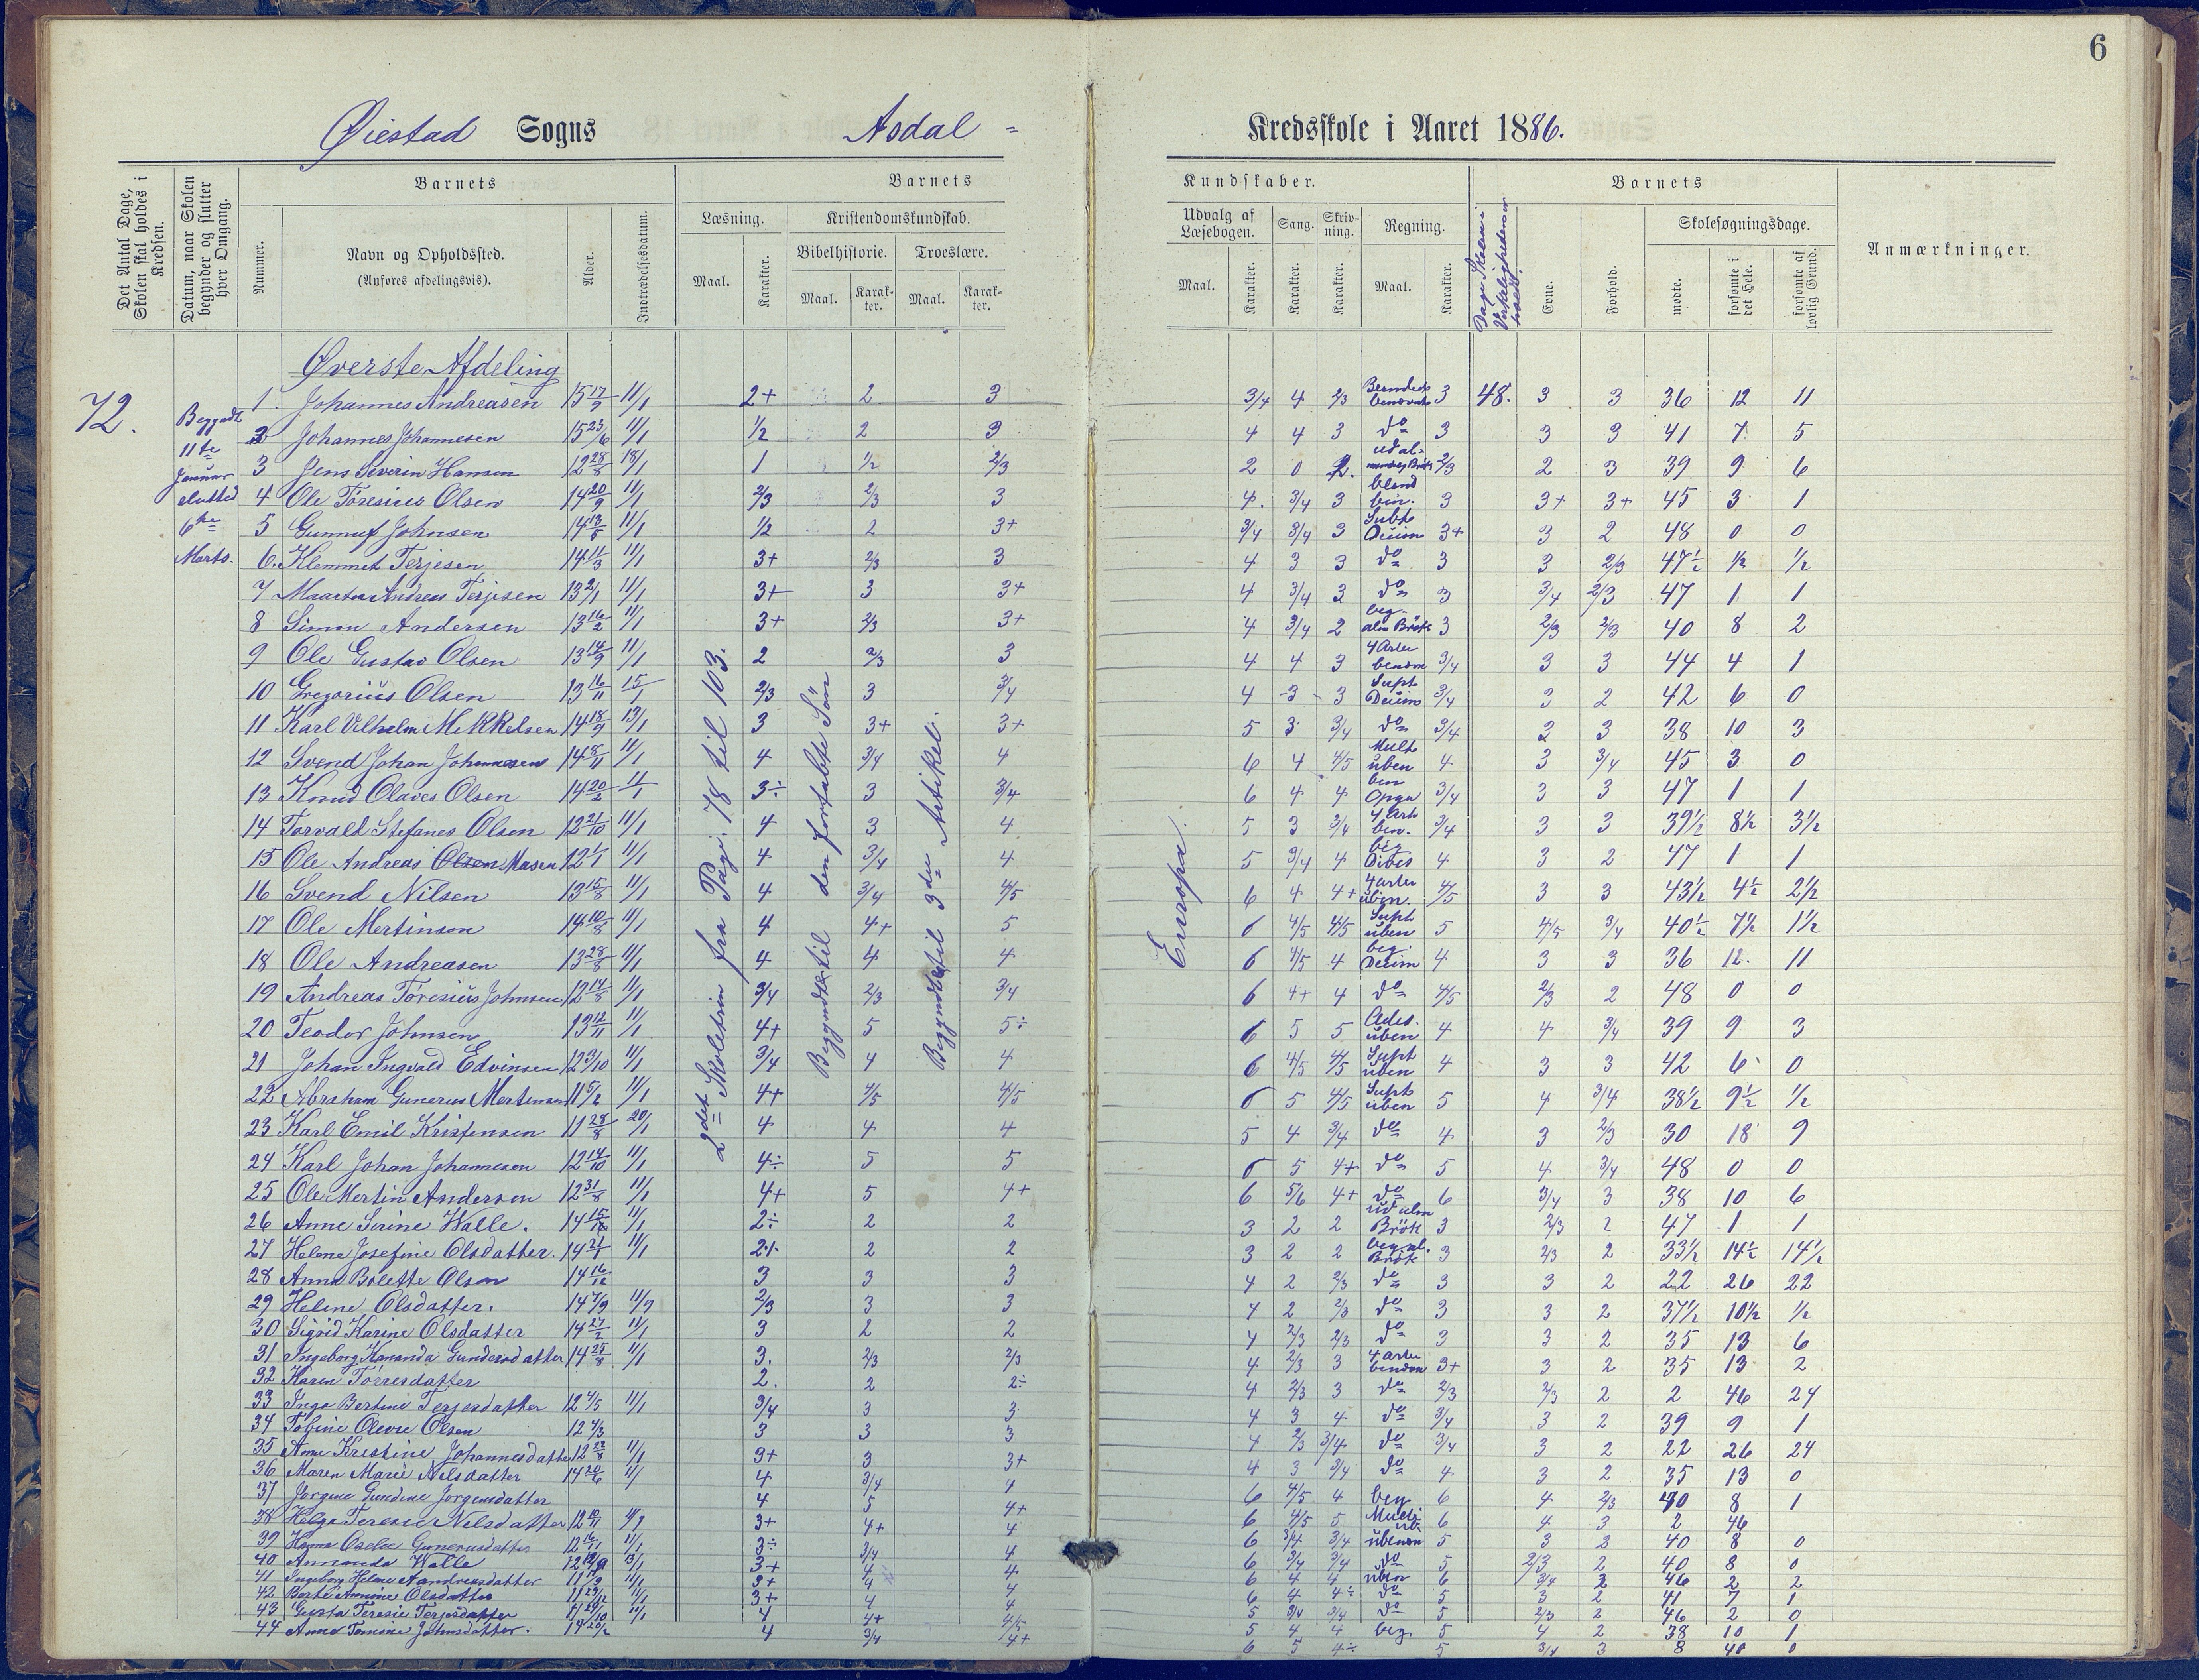 6
Øiestad Sogns Asdal = Kredsskole i Aaret 1886.
Det Antal Dage, Skolen skal holdes i Kredsen.
Datum, naar Skolen begynder og slutter hver Omgang.
Barnets
Nummer.
Navn og Opholdssted.
(Anføres afdelingsvis).
Alder.
Indtrædelsesdatum.
Barnets Kundskaber.
Læsning.
Maal. Karakter.
Kristendomskundskab.
Bibelhistorie. Troeslære.
Maal. Karakter. Maal. Karakter.
Udvalg af Læsebogen.
Maal. Karakter.
Sang.
Karakter.
Skrivning.
Karakter.
Regning.
Maal. Karakter.
Dage Skolen i Virkeligheden
Barnets
Evne. Forhold.
Skolesøgningsdage.
mødte. forsømte i det Hele. forsømte af lovlig Grund.
Anmærkninger.
72.
Begyndt
11te
Januar
slutted
6te
Marts.
2det Skoletrin fra Pag. 78 til 103.
Begyndte til den fortabte Søn
Begyndte til 3die Artikel.
Europa.
Øverste Afdeling
1. Johannes Andreasen 15 17/9 11/1 2+ 2 3 3/4 4 2/3 3 48. 3 3 36 12 11
2 Johannes Johannesen 15 23/6 11/1 1/2 2 3 4 4 3 do 3 3 3 41 7 5
3 Jens Severin Hansen 12 28/8 18/1 1 1/2 2/3 2 0 2. 2/3 2 3 39 9 6
4 Ole Tøresius Olsen 14 20/9 11/1 2/3 2/3 3 4. 3/4 3 3 3+ 3+ 45 3 1
5 Gunnuf Johnsen 14 13/5 11/1 1/2 2 3+ 3/4 3/4 3 3+ 3 2 48 0 0
6. Klemmet Terjesen 14 11/3 11/1 3+ 2/3 3 4 3 3 do 3 3 2/3 47 1/2 1/2 1/2
7 Maarten Andreas Terjesen 13 2/1 11/1 3+ 3 3+ 4 3/4 3 do 3 3/4 2/3 47 1 1
8 Simon Andersen 13 16/2 11/1 3+ 2/3 3+ 4 3/4 2 3 2/3 2/3 40 8 2
9 Ole Gustav Olsen 13 14/9 11/1 2 2/3 3 4 4 3 4 Arter benævn 3/4 3 3 44 4 1
10 Gregorius Olsen 13 16/11 15/1 2/3 3 3/4 4 3 3 3/4 3 2 42 6 0
11 Karl Vilhelm Mekkelsen 14 18/9 13/1 3 3+ 3+ 5 3 3/4 do 3/4 2 3 38 10 3
12 Svend Johan Johannesen 14 8/11 11/1 4 3/4 4 6 4 4/5 Mult uben 4 3 3/4 45 3 0
13 Knud Olaves Olsen 14 20/2 11/1 3÷ 3 3/4 6 4 4 3/4 3 3 47 1 1
14 Torvald Stefanes Olsen 12 21/10 11/1 4 3 4 5 3 3/4 4 Art ben. 3/4 3 3 39 1/2 8 1/2 3 1/2
15 Ole Andreas Olsen Masen 12 1/1 11/1 4 3/4 4 5 3/4 4 beg 4 3 2 47 1 1
16 Svend Nilsen 13 15/8 11/1 4 3/4 4/5 6 4 4+ 4 arter uben. 4/5 3 3 43 1/2 4 1/2 2 1/2
17 Ole Mertinsen 14 10/8 11/1 4 4+ 5 6 4/5 4/5 uben 5 4/5 3/4 40 1/2 7 1/2 1 1/2
18 Ole Andreasen 13 28/8 11/1 4 4 4 6 4/5 4 beg. 4 3 3 36 12. 11
19 Andreas Tøresius Johnsen 12 17/8 11/1 3/4 2/3 3/4 6 4+ 4 do 4/5 2/3 2 48 0 0
20 Teodor Johnsen 13 12/11 11/1 4+ 5 5÷ 6 5 5 uben 4 4 3/4 39 9 3
21 Johan Ingvald Edvinsen 12 3/10 11/1 3/4 4 4 6 4/5 4/5 uben 4 3 3 42 6 0
22 Abraham Gunerius Mortensen 11 5/2 11/1 4+ 4/5 4/5 6 5 4/5 uben 5 4 3/4 38 1/2 9 1/2 1/2
23 Karl Emil Kristensen 11 28/8 20/1 4 4 4 5 4 3/4 do 4 3 2/3 30 18 9
24 Karl Johan Johannesen 12 14/10 11/1 4÷ 5 5 6 5 4+ do 5 4 3/4 48 0 0
25 Ole Mertin Andersen 12 31/8 11/1 4+ 5 4+ 6 5/6 4+ do 6 3/4 3 38 10 6
26 Anne Serine Walle. 14 11/1 2÷ 2 2 3 2 2 Brøk 3 2/3 2 47 1 1
27 Helene Josefine Olsdatter. 14 11/1 2÷ 2 2 3 2 2 beg. al. Brøk 3 2/3 2 33 1/2 14 1/2 14 1/2
28 Anna Bolette Olsen 14 16/12 3 3 3 4 2 2/3 do 3 3 2 22 26 22
29 Helene Olsdatter. 14 7/9 2/3 3 3 4 2 2/3 do 3 3 2 37 1/2 10 1/2 1/2
30 Sigrid Karine Olsdatter 14 27/2 11/1 3 2 2 4 2/3 2/3 do 3 3 2 35 13 6
31 Ingeborg Kananda Gundersdatter 14 11/1 3. 2/3 2/3 4 2/3 3 4 arter 3+ 3 2 35 13 2
32 Karen Tørresdatter 2. 2 2÷ 4 2/3 3 do 2/3 2/3 2 2 46 24
33 Inga Bertine Terjesdatter 12 4/5 11/1 3/4 3 3 4 3 4 do 3/4 3 2 39 9 1
34 Tobine Olevie Olsen 12 4/3 3 3 3 4 2/3 3/4 do 3/4 3 2 22 26 24
35 Anne Kristine Johannesdatter 12 11/1 3+ 3 3+ 4 3 3/4 do 4 3 2 35 13 0
36 Maren Marie Nilsdatter 14 20/6 4 3/4 4 6 4/5 4 beg 6 4 2/3 40 8 1
37 Jørgine Gundine Jørgensdatter 4 5 4+ 6 4/5 5 6 4 3 2 46
38 Helga Teresie Nelsdatter 3+ 4+ 4 6 3/4 3/4 5 3 2 40 8 0
39 Hanna Gunerusdatter 3÷ 3/4 4 6 3/4 3/4 do 5 2/3 2 40 8 0
40 Annanda Walle 3+ 4 4 6 4 4 uben 6 3/4 2 46 2 2
41 Ingeborg Helene Aandreasdatter 3+ 4 4 6 4 4÷ do 5 3 2 41 7 1
42 Berthe Olsdatter 3+ 4 4 5 3/4 3/4 do 5 2/3 2 46 2 0
43 Gusta Teresie Terjesdatter 11/1 4 4+ 4/5 5 4 4 beg 5 4 2 38 10 1
44 Anne Tomine Johnsdatter. 14 20/2 4 3/4 4+ 6 5 4÷ 5 3/4 3 8 40 0